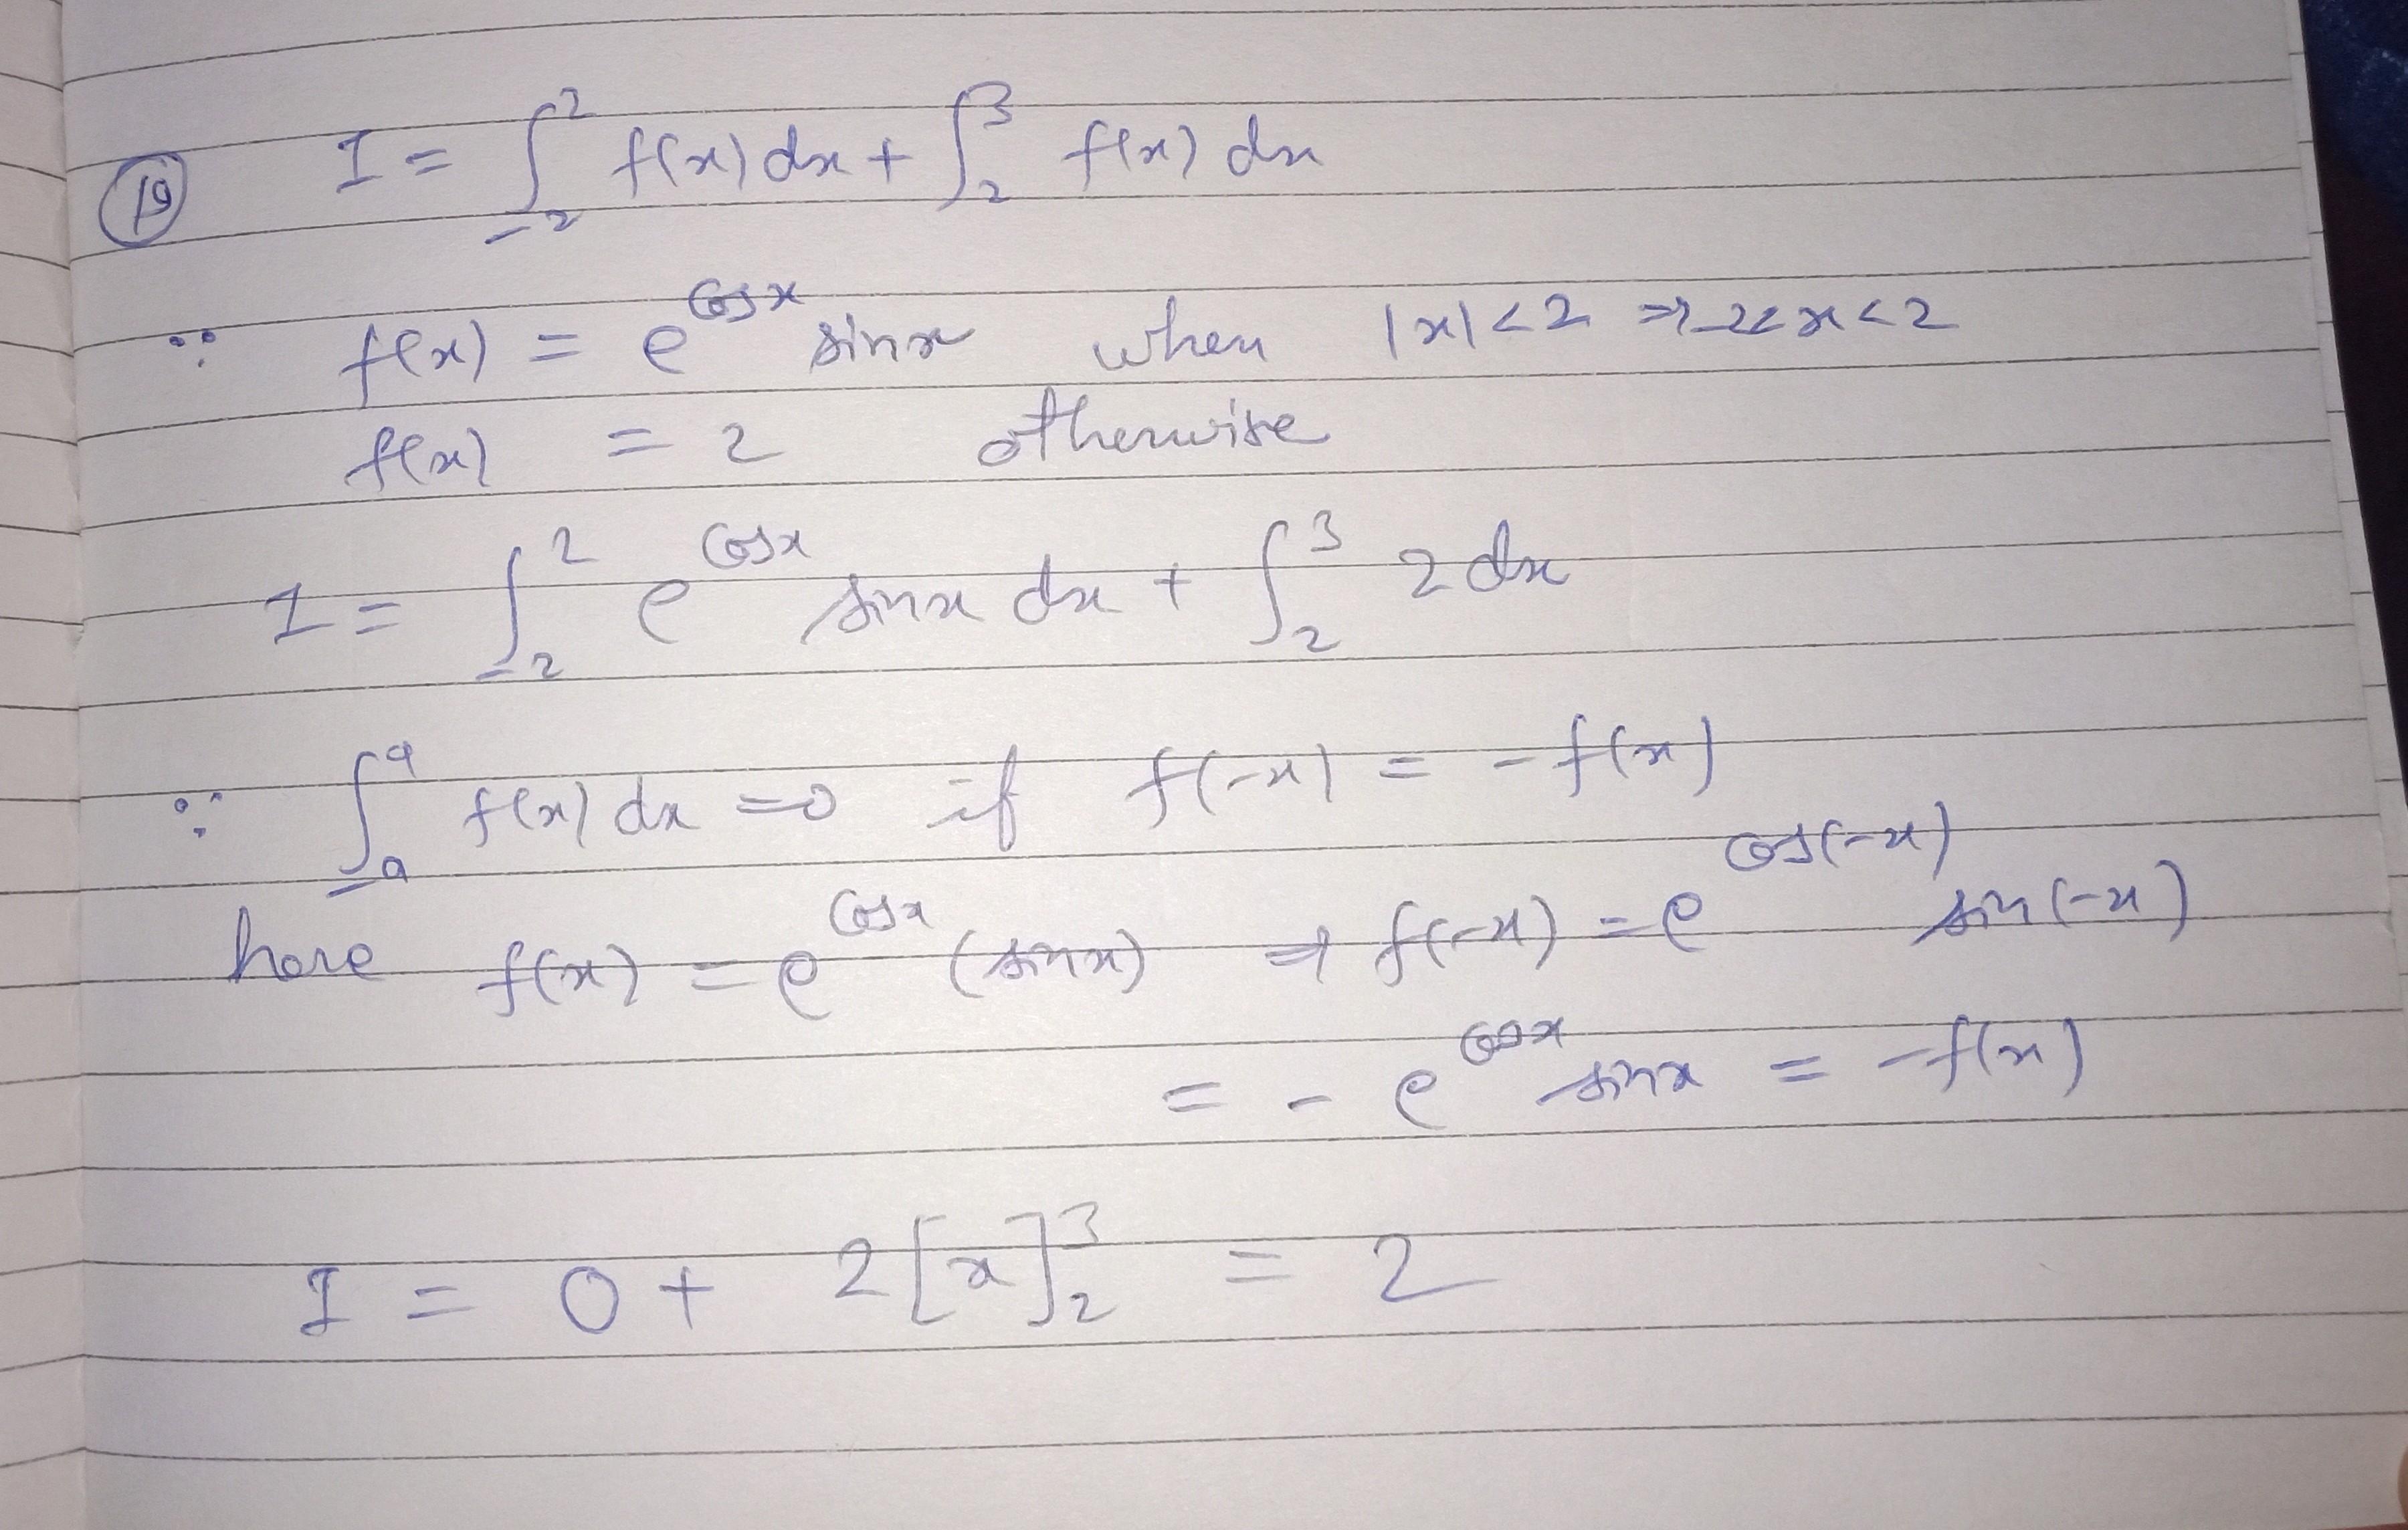 (19) I = ∫_{-2}^{2} f(x) dx + ∫_{2}^{3} f(x) dx
∵ f(x) = e^{cosx} sinx when |x|<2 ⇒ -2<x<2
f(x) = 2 otherwise
I = ∫_{-2}^{2} e^{cosx} sinx dx + ∫_{2}^{3} 2 dx
∵ ∫_{-a}^{a} f(x) dx = 0 if f(-x) = -f(x)
here f(x) = e^{cosx} (sinx) ⇒ f(-x) = e^{cos(-x)} sin(-x)
= - e^{cosx} sinx = -f(x)
I = 0 + 2[x]_{2}^{3} = 2